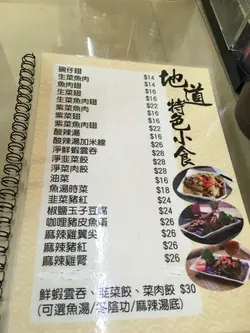 地道
特色小食
碗仔翅 $14
生菜魚肉 $14
魚肉翅 $16
生菜翅 $16
生菜魚肉翅 $22
紫菜魚肉 $16
紫菜翅 $16
紫菜魚肉翅
酸辣湯
酸辣湯加米線
淨鮮蝦雲吞 $28
淨韭菜餃 $28
淨菜肉餃 $28
油菜
魚湯時菜
韭菜豬紅
椒鹽玉子豆腐
咖哩豬皮魚蛋
麻辣雞翼尖 $26
麻辣豬紅 $26
麻辣雞腎 $26
鮮蝦雲吞、韭菜餃、菜肉餃 $30
(可選魚湯/冬陰功/麻辣湯底)